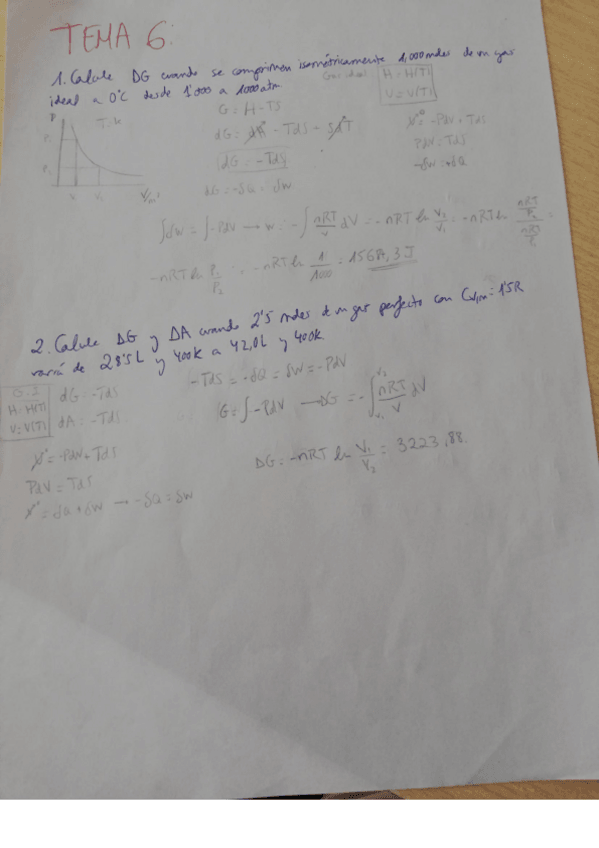 TEMA 6:
1. Calcule DG cuando se comprimen isométricamente 1,000 moles de un gas
ideal a 0°C desde 1'000 a 1000 atm.
Gas ideal H = H(T)
V = V(T)
G = H - TS
dG = dH - TdS - SdT
dG = - TdS
dG = -δQ = δW
= -PdV + TdS
PdV = TdS
-δW = δQ
P
T. k
∫dw = ∫-PdV → w = - ∫ nRT/V dV = -nRT ln V2/V1 = -nRT ln nRT/P2 / nRT/P1 =
-nRT ln P1/P2 = -nRT ln 1/1000 = 15687,3 J
2. Calcule DG y DA cuando 2'5 moles de un gas perfecto con Cv,m = 1'5R
varía de 28'5L y 400K a 42,0L y 400K
G. I
H = H(T)
V = V(T)
dG = -TdS
dA = -TdS
-TdS = -δQ = δW = -PdV
G = ∫-PdV → DG = - ∫ nRT/V dV
V2
V1
= -PdV + TdS
PdV = TdS
= δQ + δW → -δQ = δW
DG = -nRT ln V1/V2 = 3223,88.